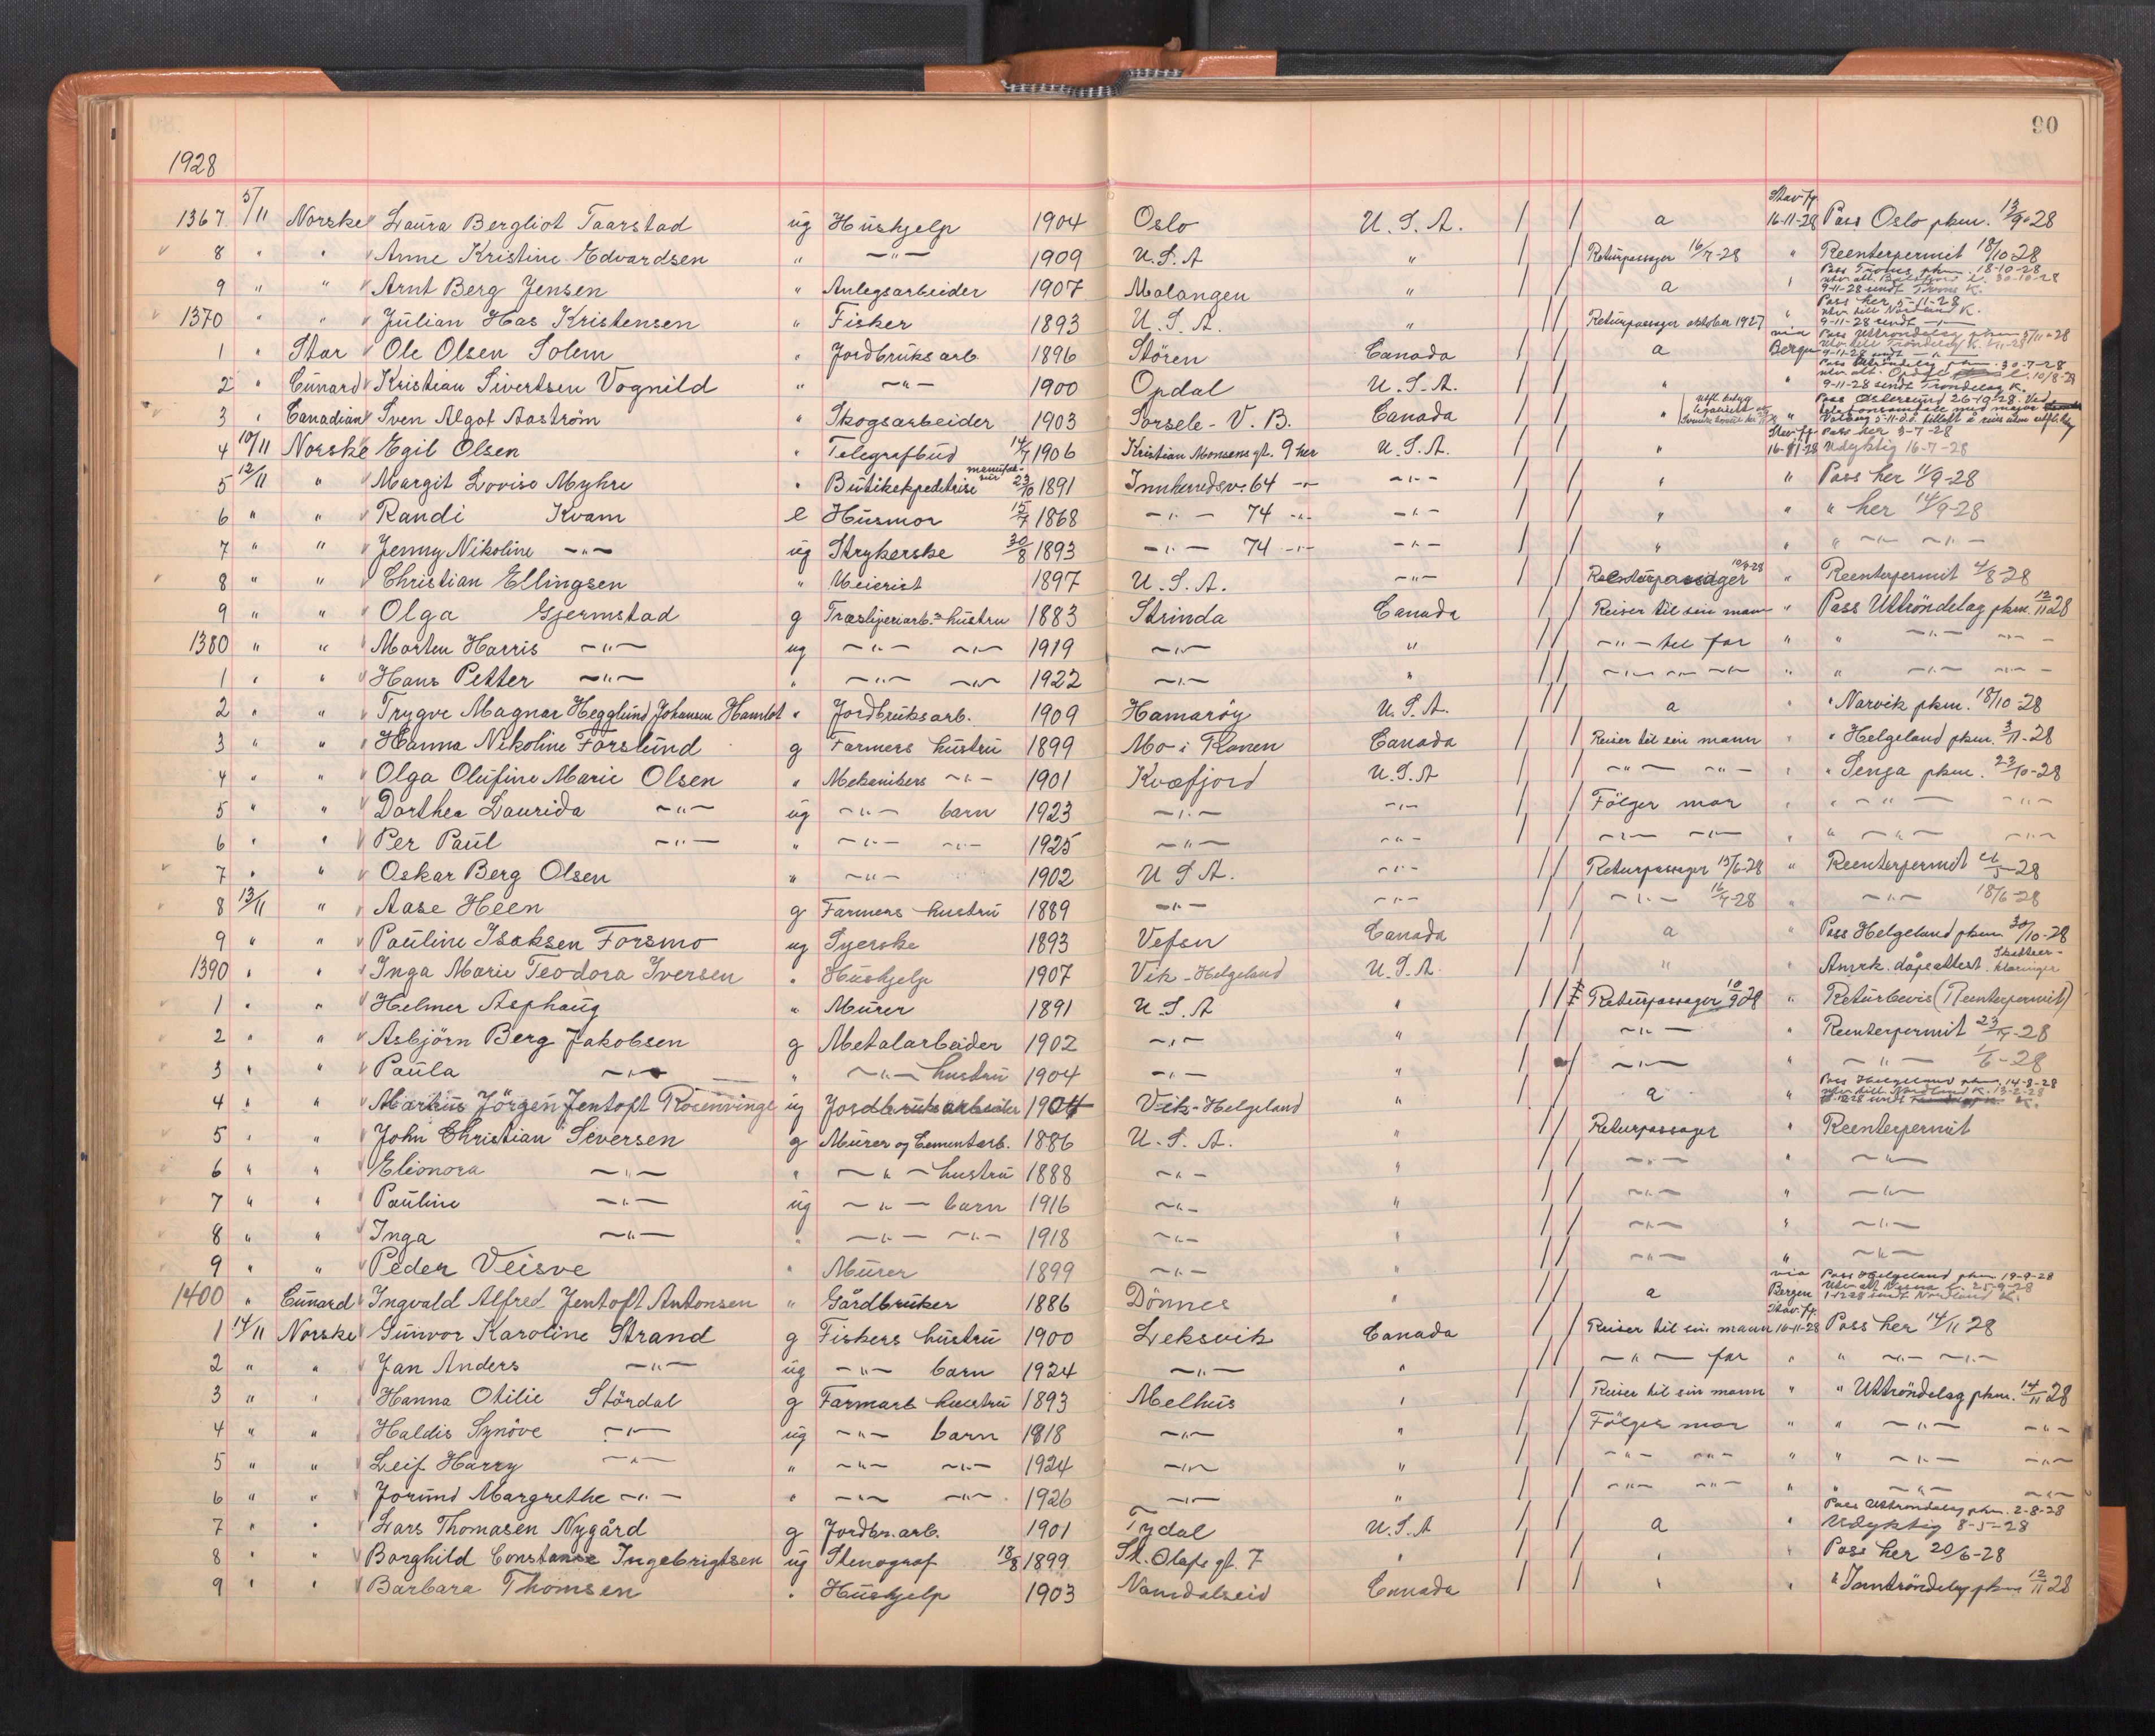 90
1928
1367 5/11 Norske Laura Bergliot Taarstad ug Hushjelp 1904 Oslo U.S.A. / / a Stav.fj. 16-11-28 Pass Oslo pkm. 13/9-28
8 " " Anne Kristine Edvardsen " -"- 1909 U.S.A " / / Returpassager 16/7-28 " Reenterpermit 18/10-28
9 " " Arnt Berg Jensen " Anlegsarbeider 1907 Malangen " / / a " Pass Troms pkm. 18-10-28 9-11-28 sendt Troms K.
1370 " " Julian Has Kristensen " Fisker 1893 U.S.A. " / / Returpassager oktober 1927 " Pass her 5-11-28 utv. till Nordland K. 9-11-28 sendt -"-
1 " Star Ole Olsen Solem " Jordbruksarb. 1896 Stören Canada / / a via Bergen Pass Uttröndelag pkm 5/11-28
2 " Cunard Kristian Sivertsen Vognild " -"- 1900 Opdal U.S.A. / / " " 9-11-28 sendt Tröndelag K.
3 " Canadian Sven Algot Aaström " Skogsarbeider 1903 Sorsele - V.B. Canada / / " " Pass Östersund 26-10-28.
4 10/11 Norske Egil Olsen " Telegrafbud 14/7 1906 Kristian Monsens gt. 9 her U.S.A. / / " Stav.fj. 16-11-28 Pass her 3-7-28 Udyktig 16-7-28
5 12/11 " Margit Lovise Myhre " Butikekpeditrise manufaktur 23/10 1891 Innherredsv. 64 -"- -"- / / " " Pass her 11/9-28
6 " " Randi Kvam e Husmor 15/7 1868 -"- 74 -"- -"- / / " " " her 14/9-28
7 " " Jenny Nikoline -"- ug Strykerske 30/8 1893 -"- 74 -"- -"- / / " " " -"- -"-
8 " " Christian Ellingsen " Meierist 1897 U.S.A. -"- / / Returpassager " Reenterpermit 4/8-28
9 " " Olga Gjermstad g Træsliperiarb.s hustru 1883 Strinda Canada / / Reiser til sin mann " Pass Uttröndelag pkm. 12/11 28
1380 " " Morten Harris -"- ug -"- -"- 1919 -"- " / / -"- til far " " -"- -"-
1 " " Hans Petter -"- " -"- -"- 1922 -"- " / / -"- -"- -"- " " -"- -"-
2 " " Trygve Magnar Hegglund Johansen Hamlot " Jordbruksarb. 1909 Hamaröy U.S.A. / / a " " Narvik pkm. 18/10-28
3 " " Hanna Nikoline Forslund g Farmers hustru 1899 Mo i Ranen Canada / / Reiser til sin mann " " Helgeland pkm. 3/11-28
4 " " Olga Olufine Marie Olsen " Mekanikers -"- 1901 Kvæfjord U.S.A / / -"- -"- " " Senja pkm. 23/10-28
5 " " Dorthea Laurida -"- ug -"- barn 1923 -"- -"- / / Fölger mor " " -"- -"-
6 " " Per Paul -"- " -"- -"- 1925 -"- -"- / / -"- -"- " " -"- -"-
7 " " Oskar Berg Olsen " -"- 1902 U.S.A. -"- / / Returpassager 15/6-28 " Reenterpermit 26/5-28
8 13/11 " Aase Heen g Farmers hustru 1889 -"- -"- / / -"- 16/7-28 " -"- 18/6-28
9 " " Pauline Isaksen Forsmo ug Syerske 1893 Vefsn Canada / / a " Pass Helgeland pkm 30/10-28
1390 " " Inga Marie Teodora Iversen " Hushjelp 1907 Vik - Helgeland U.S.A. / / " Amrk. dåpsattest.
1 " " Helmer Asphaug " Murer 1891 U.S.A " / / Returpassager 10/9 28 " Returbevis (Reenterpermit)
2 " " Asbjörn Berg Jakobsen g Metalarbeider 1902 -"- " / / -"- " Reenterpermit 23/4-28
3 " " Paula -"- " -"- hustru 1904 -"- " / / -"- " -"- 1/6-28
4 " " Markus Jörgen Jentoft Rosenvinge ug Jordbruksarbeider 1904 Vik - Helgeland " / / a " Pass Helgeland pkm. 14-8-28
5 " " John Christian Seversen g Murer og Cementarb. 1886 U.S.A. " / / Returpassager " Reenterpermit
6 " " Elionora -"- " -"- hustru 1888 -"- " / / -"- " -"-
7 " " Pauline -"- ug -"- barn 1916 -"- " / / -"- " -"-
8 " " Inga -"- " -"- -"- 1918 -"- " / / -"- " -"-
9 " " Peder Veisve " Murer 1899 -"- " / / -"- " -"-
1400 " Cunard Ingvald Alfred Jentoft Antonsen " Gårdbruker 1886 Dönnes " / / a via Bergen Pass Helgeland pkm 19-9-28
1 14/11 Norske Gunvor Karoline Strand g Fiskers hustru 1900 Leksvik Canada / / Reiser til sin mann Stav.fj. 16-11-28 Pass her 14/11 28
2 " " Jan Anders -"- ug -"- barn 1924 -"- " / / -"- far " " -"- -"-
3 " " Hanna Otilie Stördal g Farmarb. hustru 1893 Melhus " / / Reiser til sin mann " " Uttröndelag pkm. 14/11 28
4 " " Haldis Synöve -"- ug -"- barn 1918 -"- " / / Fölger mor " " -"- -"-
5 " " Leif Harry -"- " -"- -"- 1924 -"- " / / -"- -"- " " -"- -"-
6 " " Jorund Margrethe -"- " -"- -"- 1926 -"- " / / -"- -"- " " -"- -"-
7 " " Lars Thomasen Nygård g Jordbr.arb. 1901 Tydal U.S.A / / a " Pass Uttröndelag pkm. 2-8-28 Udyktig 8-5-28
8 " " Borghild Constanse Ingebrigtsen ug Stenograf 18/8 1899 St. Olafs gt. 7 " / / " " Pass her 20/6-28
9 " " Barbara Thomsen " Hushjelp 1903 Namdalseid Canada / / " " " Inntröndelag pkm 12/11 28